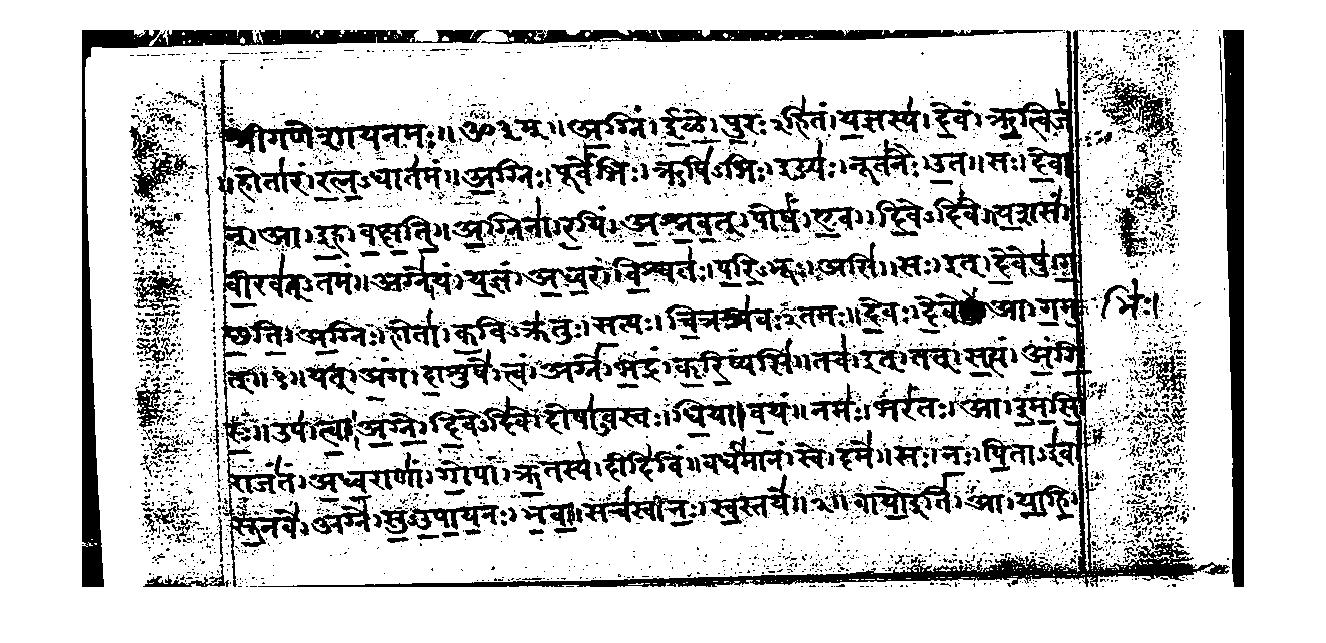 श्रीगणेशायनमः॥ ॐ३म्॥ अ॒ग्निं। ई॒ळे॒। पु॒रः२हि॑तं। य॒ज्ञस्य॑। दे॒वं। ऋ॒त्विजं॑
॥होता॑रं। र॒त्न॒ऽधात॑मं॥ अ॒ग्निः। पूर्वे॑भिः। ऋषि॑ऽभिः। ईड्यः॑। नूत॑नैः। उ॒त॥ सः। दे॒वा
न्। आ। इ॒ह। व॒क्ष॒ति॒॥ अ॒ग्निना॑। र॒यिं। अ॒श्न॒व॒त्। पोषं॑। ए॒व। दि॒वेऽदि॑वे॥ य॒शसं॑।
वी॒रव॑त्ऽतमं॥ अग्ने॑। यं। य॒ज्ञं। अ॒ध्व॒रं। वि॒श्वतः॑। प॒रि॒ऽभूः। असि॑॥ सः। इत्। दे॒वेषु॑। ग॒
च्छ॒ति॒। अ॒ग्निः। होता॑। क॒विऽक्र॑तुः। स॒त्यः। चि॒त्रश्र॑वः२तमः॥ दे॒वः। दे॒वे आ। ग॒म॒ भिः॑।
त्॥१॥ यत्। अं॒ग। दा॒शुषे॑। त्वं। अग्ने॑। भ॒द्रं। क॒रि॒ष्यसि॑॥ तव॑। इत्। तत्। स॒त्यं। अं॒गि॒
रः॒॥ उप॑। त्वा॒। अ॒ग्ने॒। दि॒वेऽदि॑वे। दोषा॑ऽवस्तः। धि॒या। व॒यं॥ नमः॑। भरं॑तः। आ। इ॒म॒सि॒
राजं॑तं। अ॒ध्व॒राणां॑। गो॒पां। ऋ॒तस्य॑। दीदि॑विं॥ वर्ध॑मानं। स्वे। दमे॑॥ सः। नः॒। पि॒ताऽइ॑व
सू॒नवे॑। अग्ने॑। सु॒ऽउ॒पा॒य॒नः। भ॒व॒॥ सच॑स्व। नः॒। स्व॒स्तये॑॥२॥ वायो॒इति॑। आ। या॒हि॒।